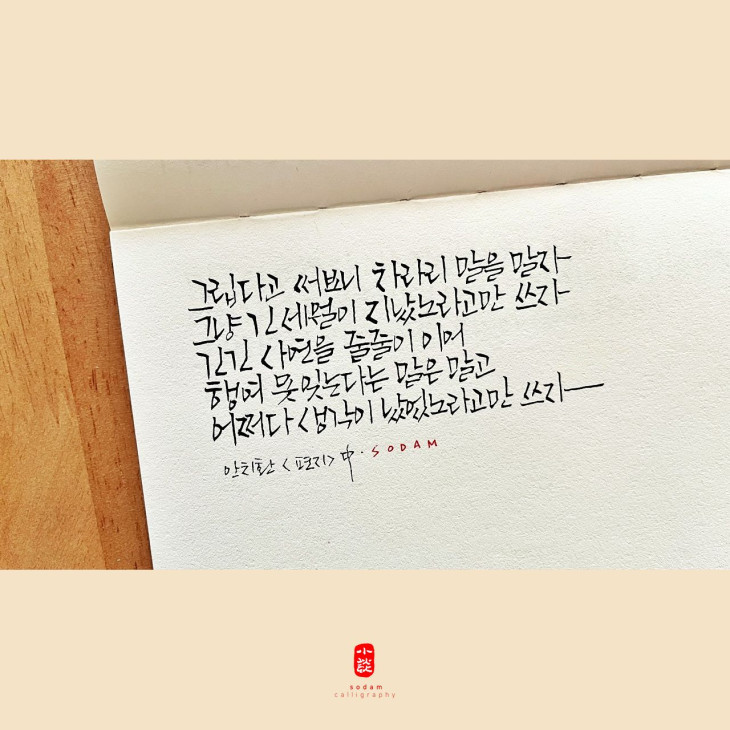 그립다고 써보니 차라리 말을 말자
그냥 긴 세월이 지났노라고만 쓰자
긴긴 사연을 줄줄이 이어
행여 못잊는다는 말은 말고
어쩌다 생각이 났었노라고만 쓰자
안치환 <편지> 中 · SODAM
小
sodam
calligraphy